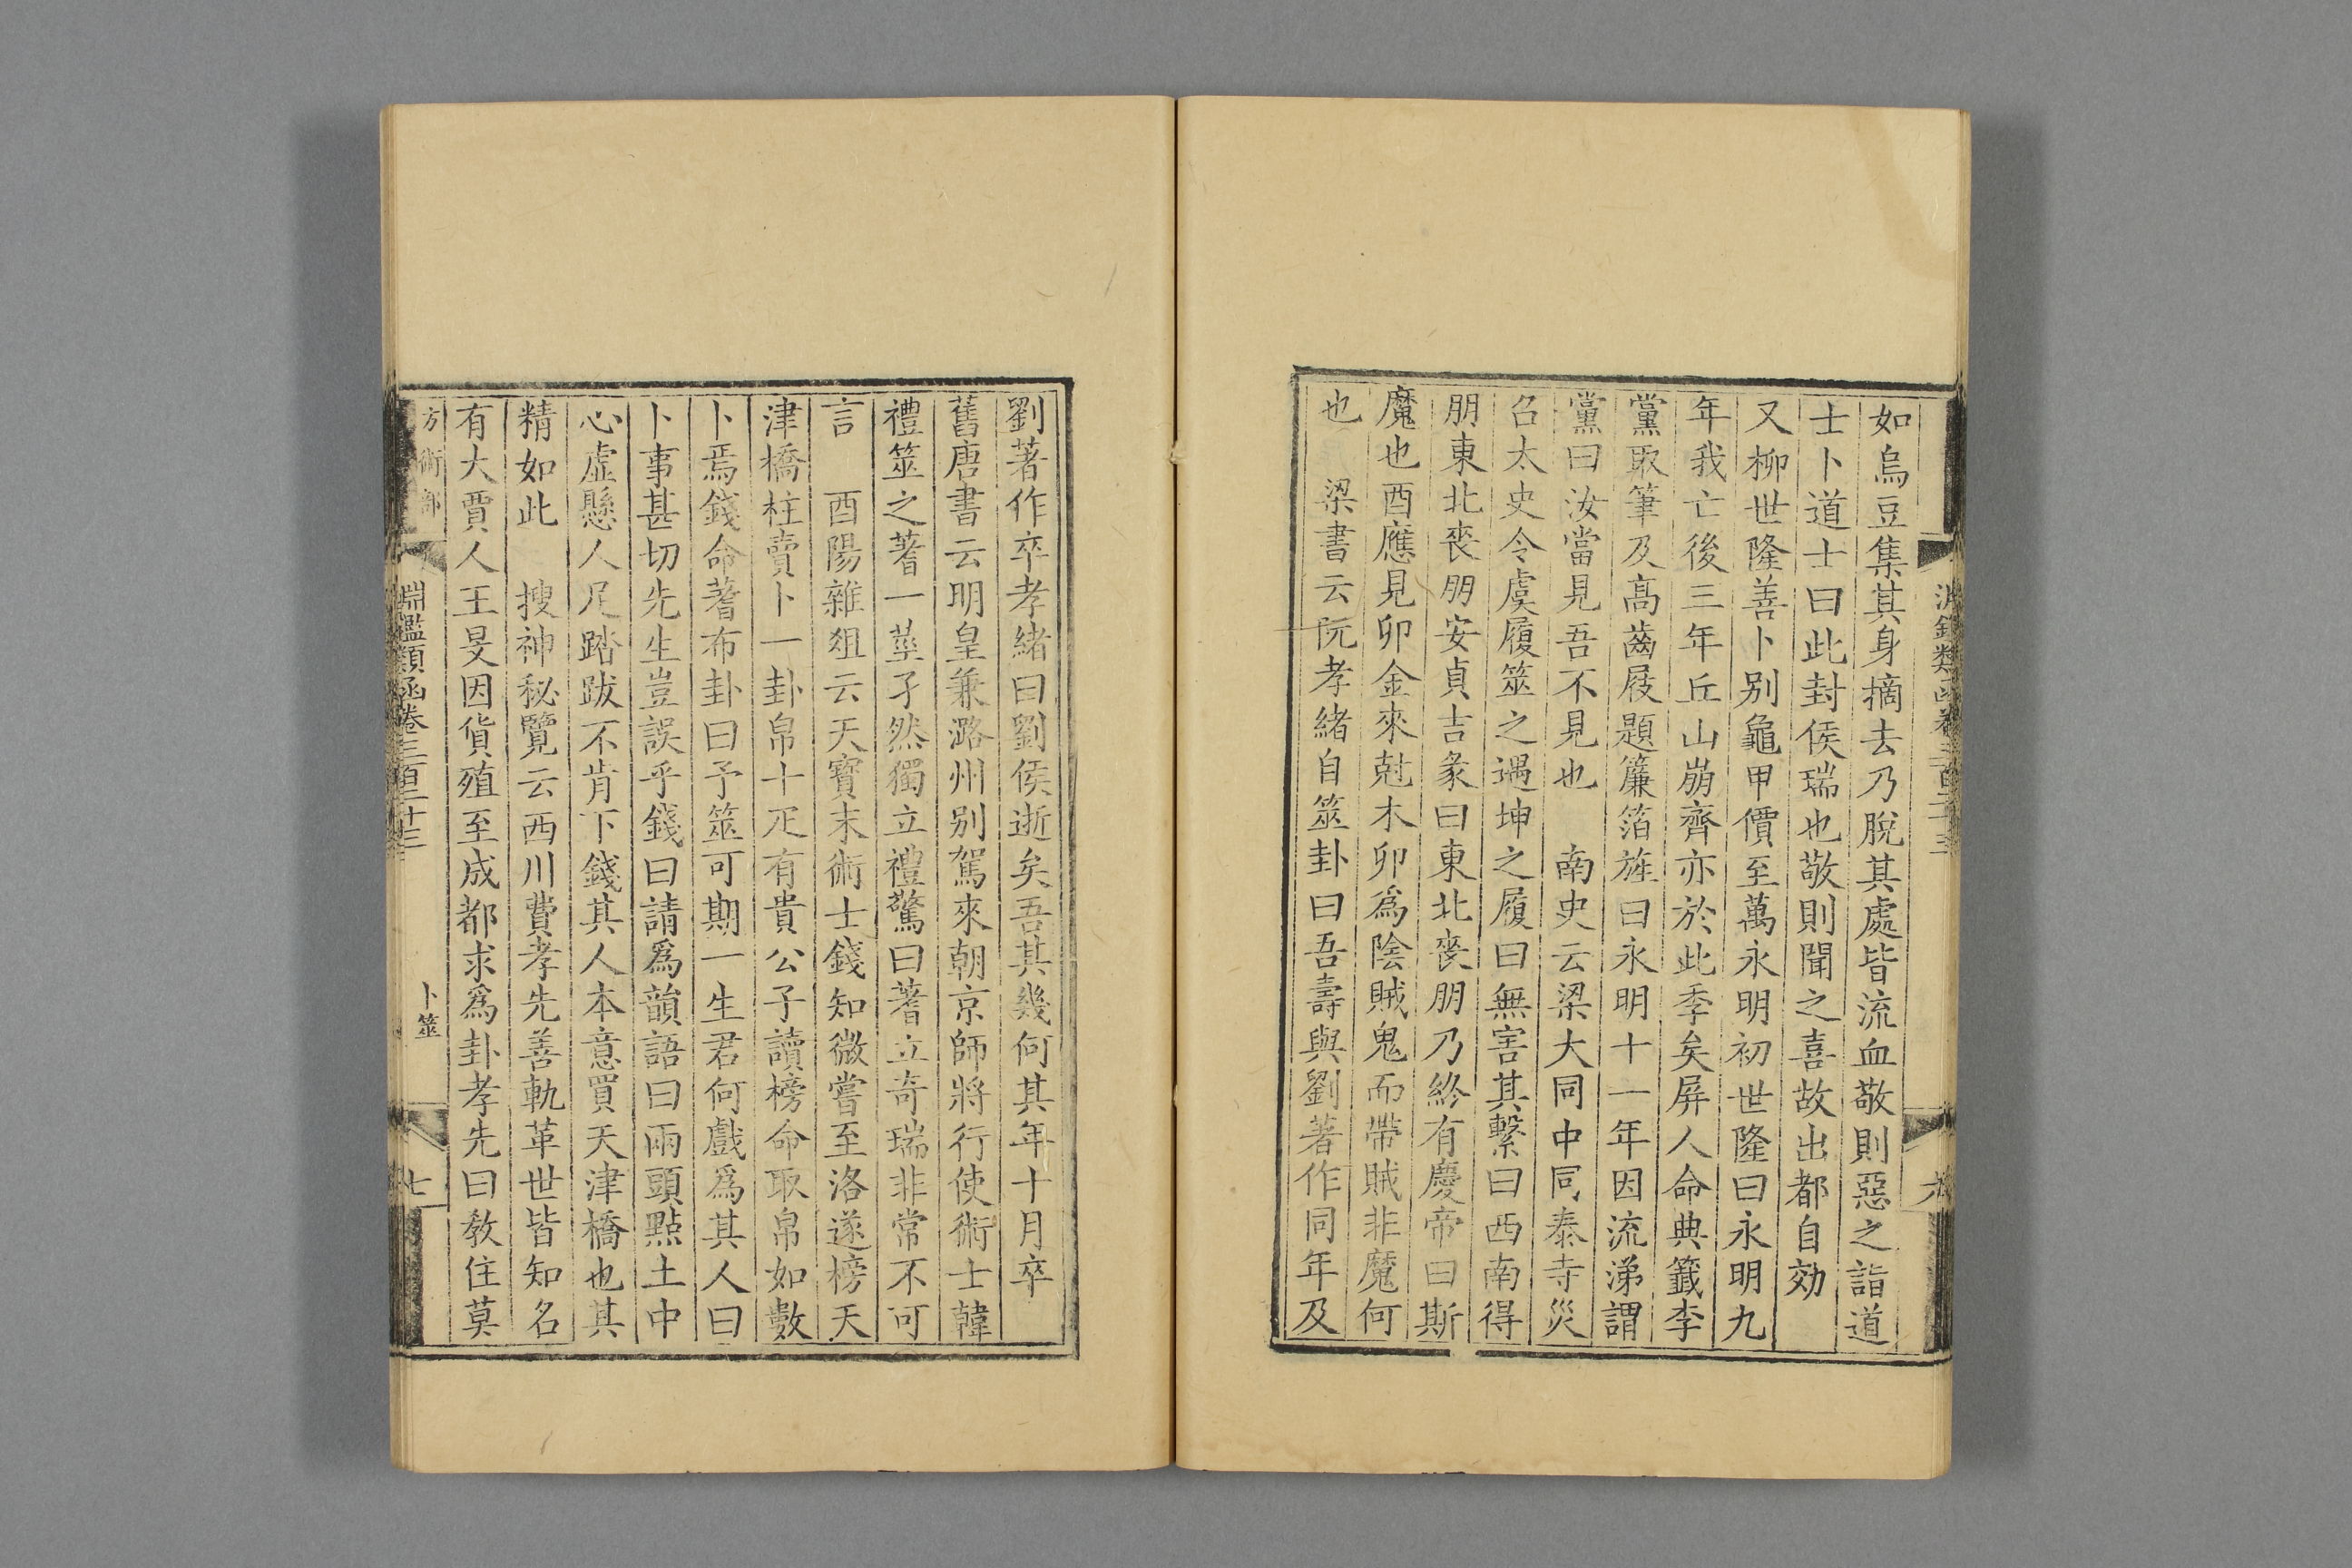 如烏豆集其身摘去乃脫其處皆流血敬則惡之詣道
士卜道士曰此封侯瑞也敬則聞之喜故出都自効
又柳世隆善卜别龜甲價至萬永明初世隆曰永明九
年我亡後三年丘山崩齊亦於此季矣屏人命典籤李
黨取筆及高齒屐題簾箔旌曰永明十一年因流涕謂
黨曰汝當見吾不見也　南史云梁大同中同泰寺災
召太史令虞履筮之遇坤之履曰無害其繫曰西南得
朋東北喪朋安貞吉彖曰東北喪朋乃終有慶帝曰斯
魔也酉應見卯金來尅木卯爲陰賊鬼而帶賊非魔何
也　梁書云阮孝緒自筮卦曰吾壽與劉著作同年及
劉著作卒孝緒曰劉侯逝矣吾其幾何其年十月卒
舊唐書云明皇兼潞州别駕來朝京師將行使術士韓
禮筮之蓍一莖孑然獨立禮驚曰蓍立奇瑞非常不可
言　酉陽雜俎云天寶末術士錢知微嘗至洛遂榜天
津橋柱賣卜一卦帛十疋有貴公子讀榜命取帛如數
卜焉錢命蓍布卦曰予筮可期一生君何戲爲其人曰
卜事甚切先生豈誤乎錢曰請爲韻語曰兩頭點土中
心虛懸人足踏跋不肯下錢其人本意買天津橋也其
精如此　搜神秘覽云西川費孝先善軌革世皆知名
有大賈人王旻因貨殖至成都求爲卦孝先曰教住莫
方術部　淵鑑類函卷三百二十三　卜筮　七